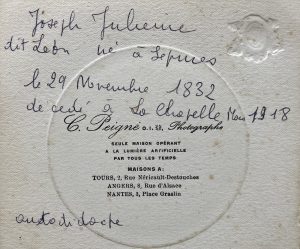 Joseph Julienne
dit Léon né à Sepmes
le 29 Novembre 1832
de cedé à La Chapelle Mars 1918
C. Peigné O.I. Photographe
SEULE MAISON OPÉRANT
A LA LUMIÈRE ARTIFICIELLE
PAR TOUS LES TEMPS
MAISONS A:
TOURS, 2, Rue Néricault-Destouches
ANGERS, 8, Rue d'Alsace
NANTES, 3, Place Graslin
autodidacte